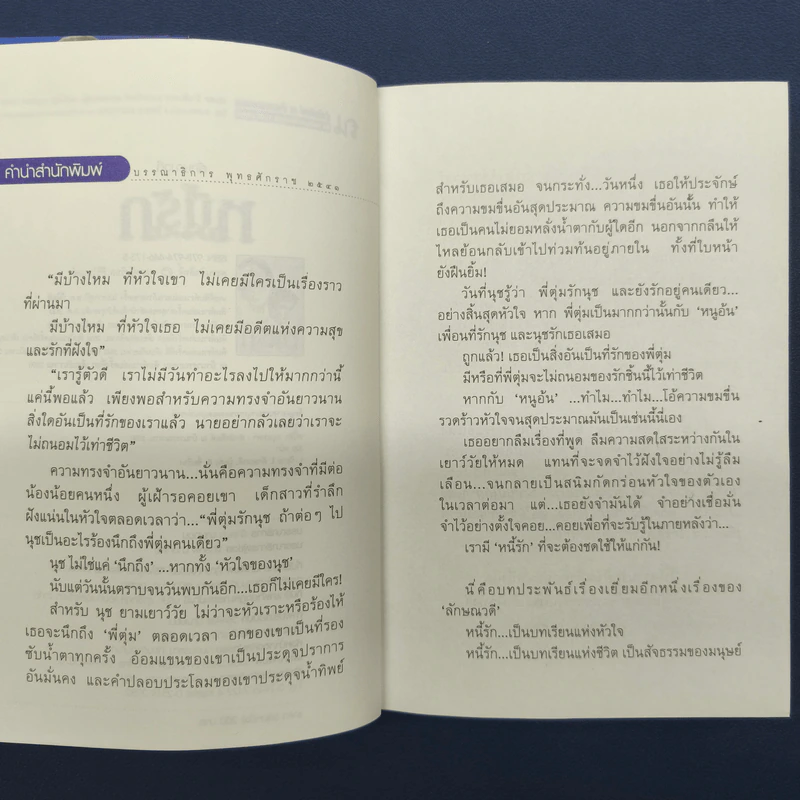 คำนำสำนักพิมพ์
บรรณาธิการ พุทธศักราช ๒๕๔๑
“มีบ้างไหม ที่หัวใจเขา ไม่เคยมีใครเป็นเรื่องราว
ที่ผ่านมา
มีบ้างไหม ที่หัวใจเธอ ไม่เคยมีอดีตแห่งความสุข
และรักที่ฝังใจ”
“เรารู้ตัวดี เราไม่มีวันทำอะไรลงไปให้มากกว่านี้
แค่นี้พอแล้ว เพียงพอสำหรับความทรงจำอันยาวนาน
สิ่งใดอันเป็นที่รักของเราแล้ว นายอย่ากลัวเลยว่าเราจะ
ไม่ถนอมไว้เท่าชีวิต”
ความทรงจำอันยาวนาน...นั่นคือความทรงจำที่มีต่อ
น้องน้อยคนหนึ่ง ผู้เฝ้ารอคอยเขา เด็กสาวที่รำลึก
ฝังแน่นในหัวใจตลอดเวลาว่า...“พี่ตุ่มรักนุช ถ้าต่อๆ ไป
นุชเป็นอะไรร้องนึกถึงพี่ตุ่มคนเดียว”
นุช ไม่ใช่แค่ ‘นึกถึง’ ...หากทั้ง ‘หัวใจของนุช’
นับแต่วันนั้นตราบจนวันพบกันอีก...เธอก็ไม่เคยมีใคร!
สำหรับ นุช ยามเยาว์วัย ไม่ว่าจะหัวเราะหรือร้องไห้
เธอจะนึกถึง ‘พี่ตุ่ม’ ตลอดเวลา อกของเขาเป็นที่รอง
ซับน้ำตาทุกครั้ง อ้อมแขนของเขาเป็นประดุจปราการ
อันมั่นคง และคำปลอบประโลมของเขาประดุจน้ำทิพย์
สำหรับเธอเสมอ จนกระทั่ง...วันหนึ่ง เธอให้ประจักษ์
ถึงความขมขื่นอันสุดประมาณ ความขมขื่นอันนั้น ทำให้
เธอเป็นคนไม่ยอมหลั่งน้ำตากับผู้ใดอีก นอกจากกลืนให้
ไหลย้อนกลับเข้าไปท่วมท้นอยู่ภายใน ทั้งที่ใบหน้า
ยังฝืนยิ้ม!
วันที่นุชรู้ว่า พี่ตุ่มรักนุช และยังรักอยู่คนเดียว...
อย่างสิ้นสุดหัวใจ หาก พี่ตุ่มเป็นมากกว่านั้นกับ ‘หนูอ้น’
เพื่อนที่รักนุช และนุชรักเธอเสมอ
ถูกแล้ว! เธอเป็นสิ่งอันเป็นที่รักของพี่ตุ่ม
มีหรือที่พี่ตุ่มจะไม่ถนอมของรักชิ้นนี้ไว้เท่าชีวิต
หากกับ ‘หนูอ้น’ ...ทำไม...ทำไม...โอ้ความขมขื่น
รวดร้าวหัวใจจนสุดประมาณมันเป็นเช่นนี้นี่เอง
เธออยากลืมเรื่องที่พูด ลืมความสดใสระหว่างกันใน
เยาว์วัยให้หมด แทนที่จะจดจำไว้ฝังใจอย่างไม่รู้ลืม
เลือน...จนกลายเป็นสนิมกัดกร่อนหัวใจของตัวเอง
ในเวลาต่อมา แต่...เธอยังจำมันได้ จำอย่างเชื่อมั่น
จำไว้อย่างตั้งใจคอย...คอยเพื่อที่จะรับรู้ในภายหลังว่า...
เรามี ‘หนี้รัก’ ที่จะต้องชดใช้ให้แก่กัน!
นี่คือบทประพันธ์เรื่องเยี่ยมอีกหนึ่งเรื่องของ
‘ลักษณวดี’
หนี้รัก...เป็นบทเรียนแห่งหัวใจ
หนี้รัก...เป็นบทเรียนแห่งชีวิต เป็นสัจธรรมของมนุษย์